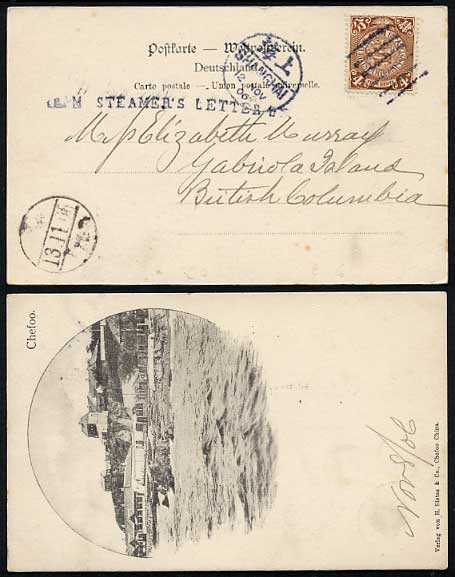 Postkarte — Weltpostverein.
Deutschland
Carte postale — Union postale universelle.
M STEAMER'S LETTER
上海
SHANGHAI
12 NOV
06
Miss Elizabeth Murray
Gabriola Island
British Columbia
13 11 06
Chefoo.
Nov 8/06
Verlag von H. Sietas & Co., Chefoo China.